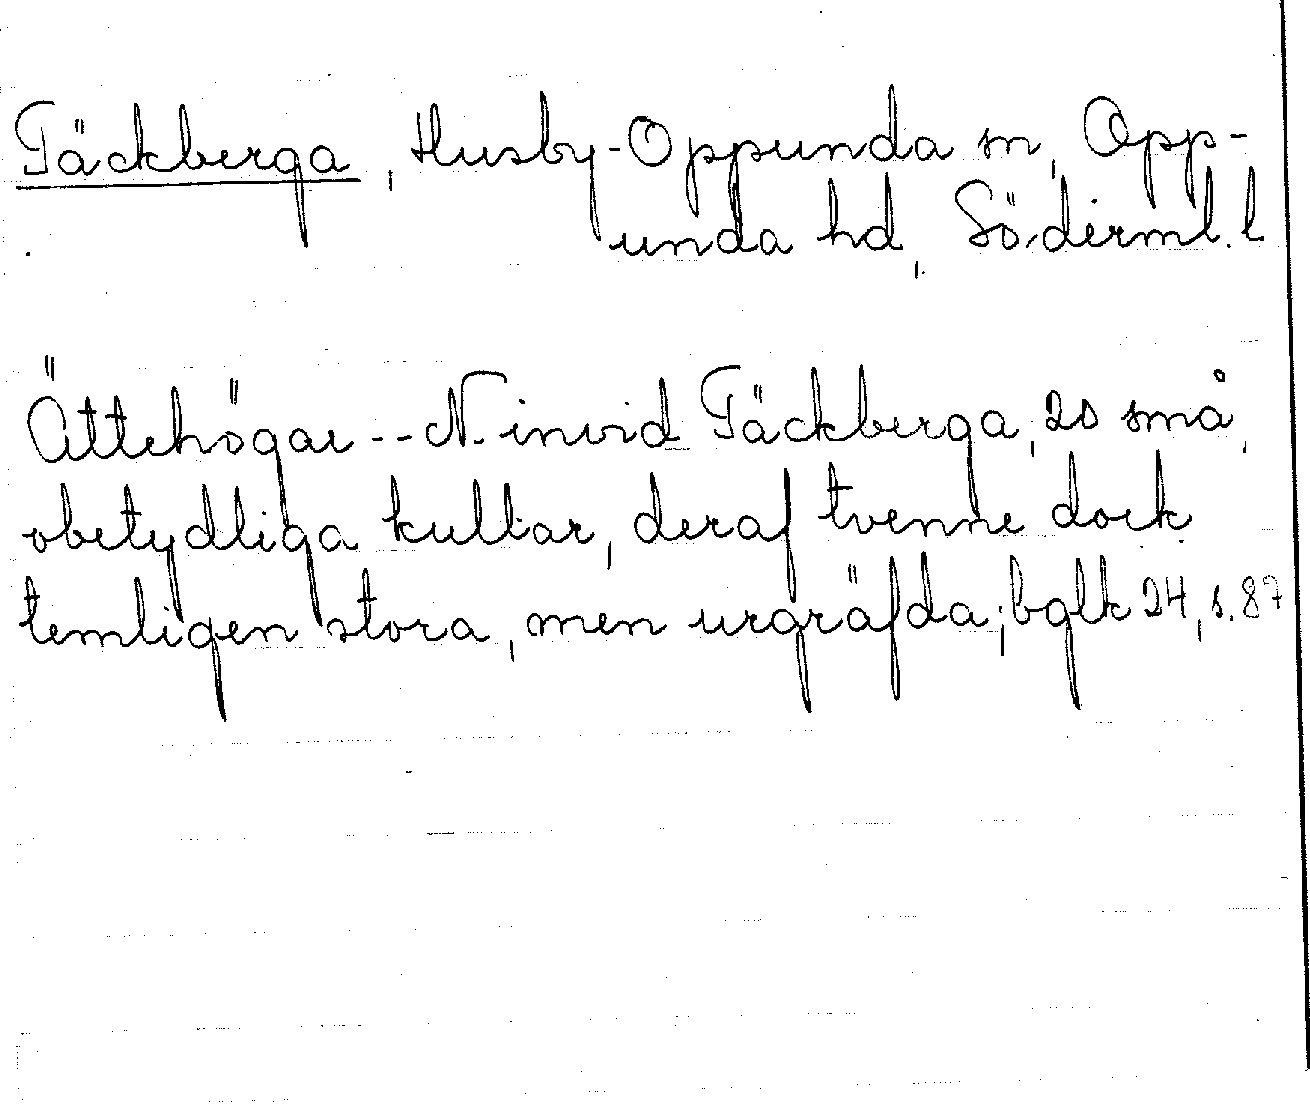 Täckberga, Husby-Oppunda sn, Opp-
unda hd, Söderml. l
Ättehögar -- N. invid Täckberga, 20 små,
obetydliga kullar, deraf tvenne dock
temligen stora, men urgräfda; bglk 24, s. 87